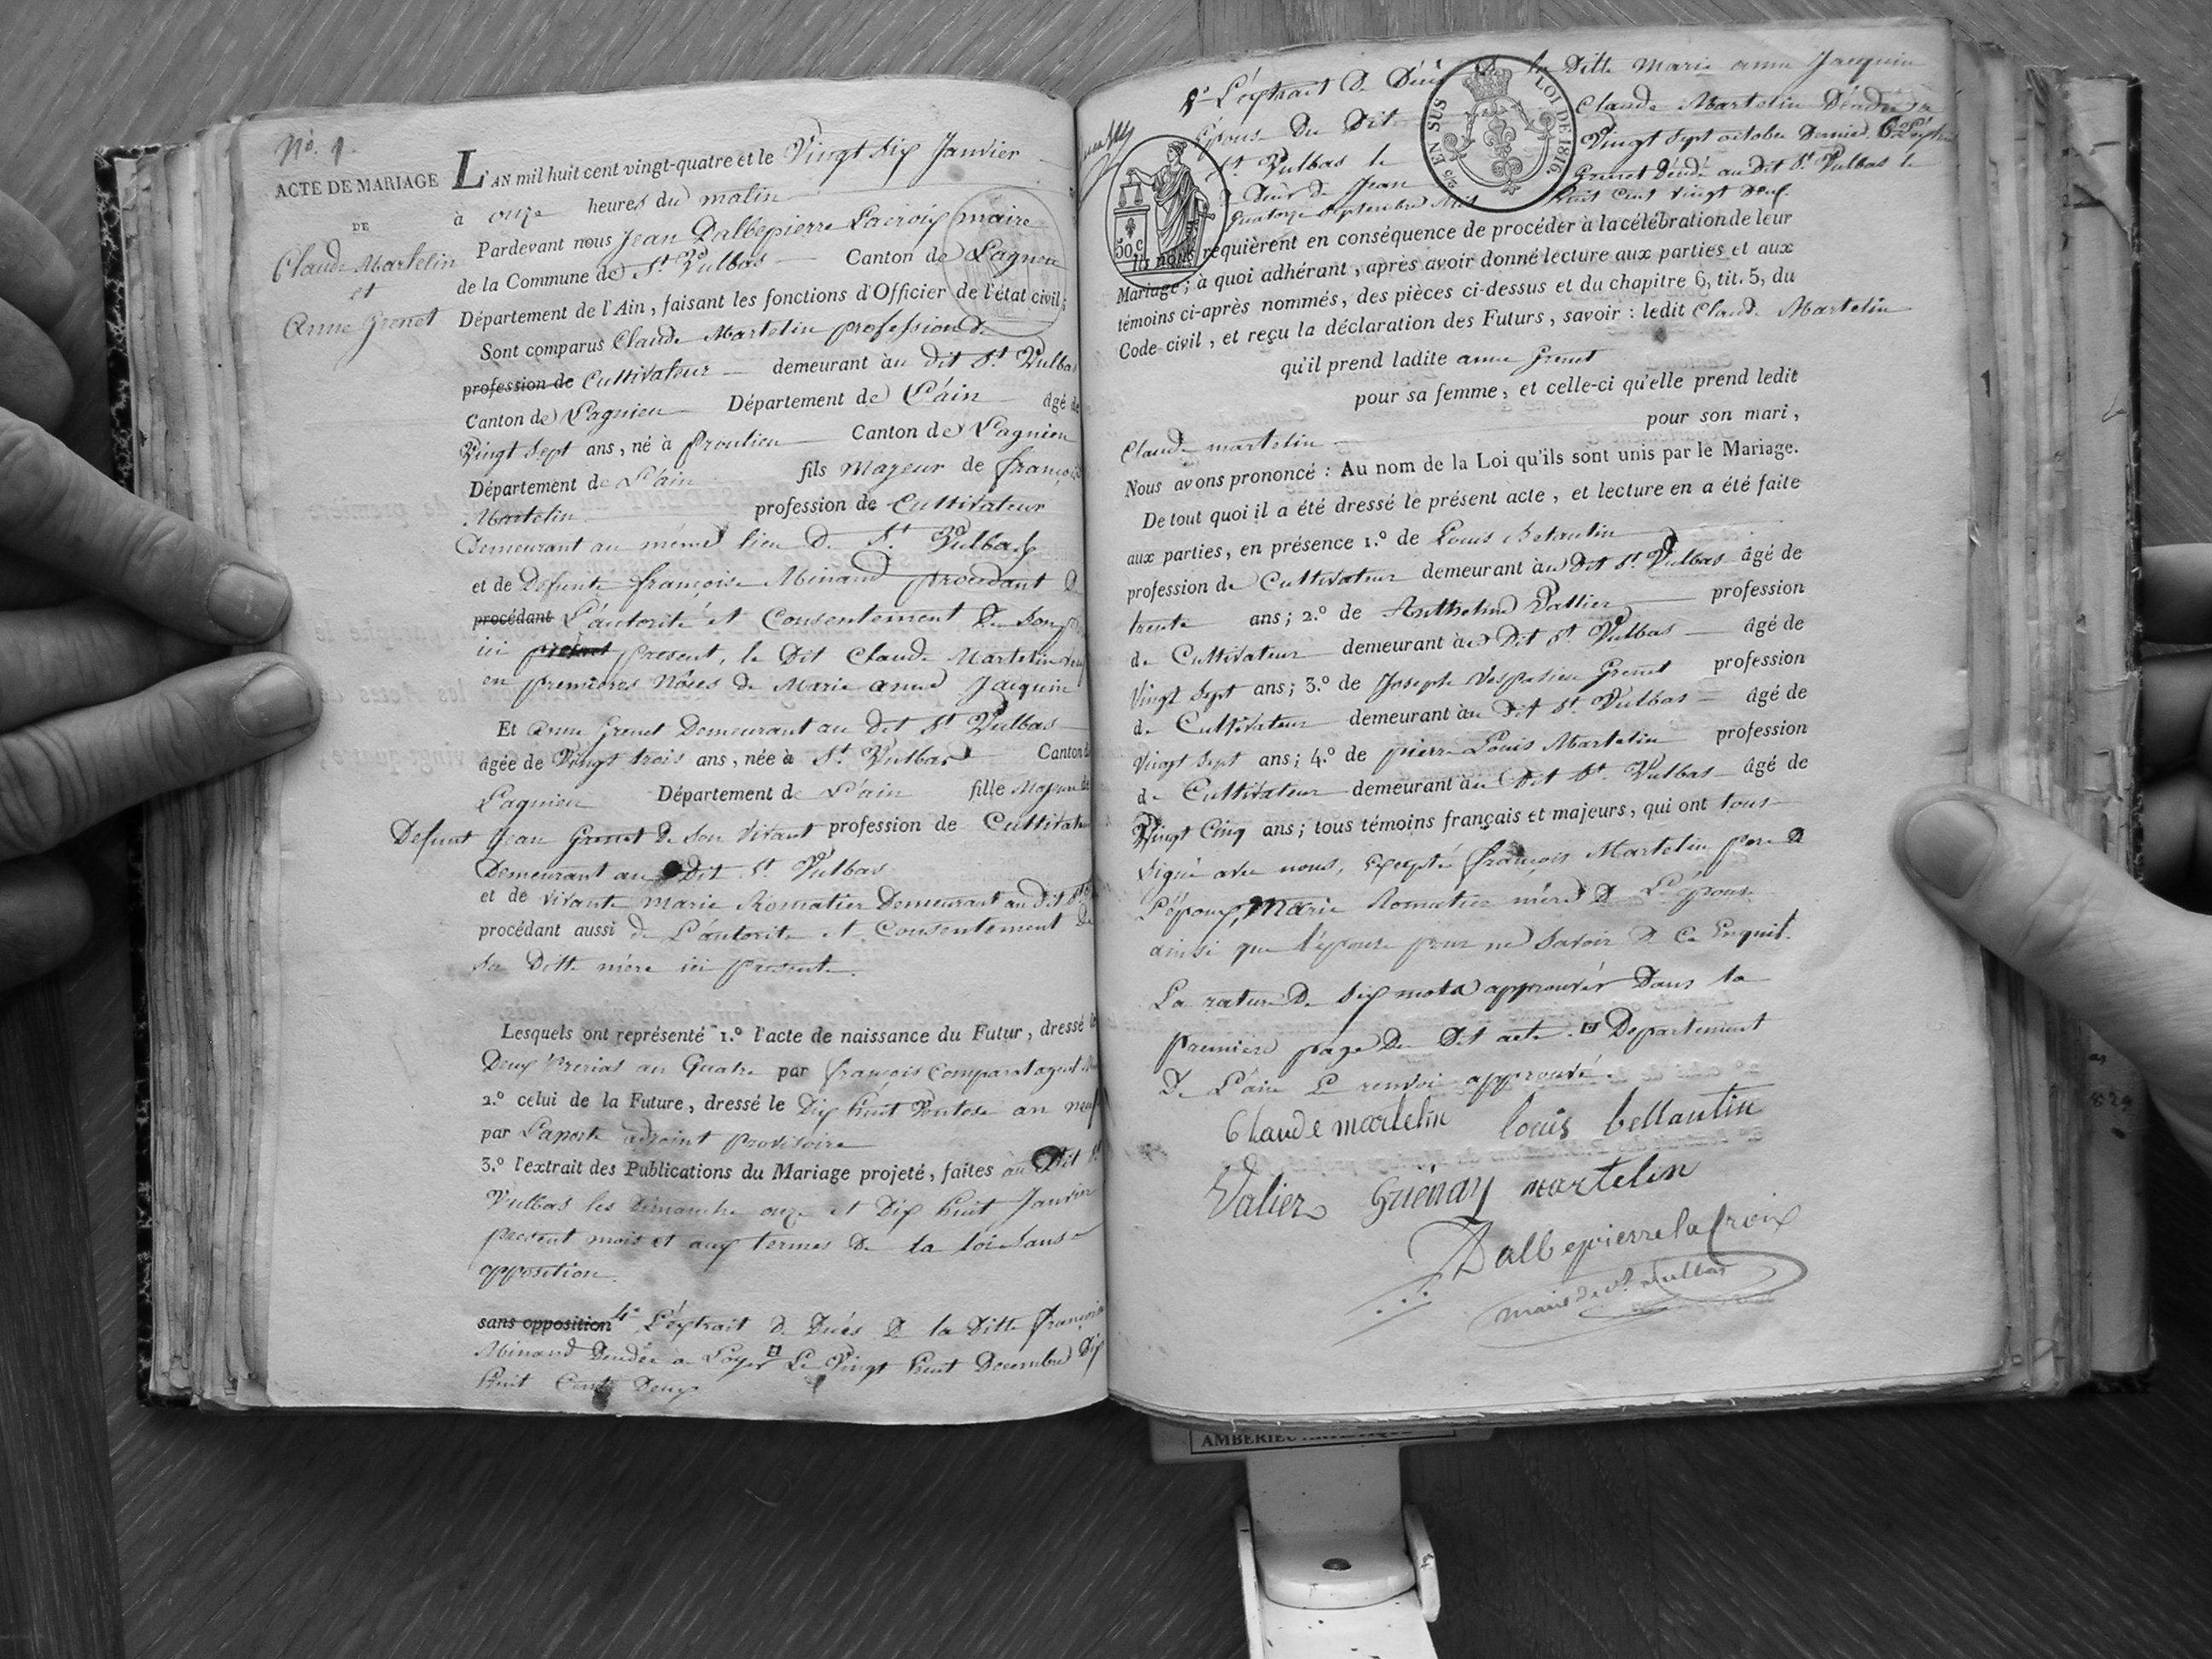 No. 1.
ACTE DE MARIAGE
DE
Claude Martelin
et
Anne Grenet
L'AN mil huit cent vingt-quatre et le Vingt Six Janvier
à onze heures du matin
Pardevant nous Jean Dalbepierre Lacroix maire
de la Commune de St. Vulbas Canton de Lagnieu
Département de l'Ain, faisant les fonctions d'Officier de l'état civil;
Sont comparus Claude Martelin profession de
profession de Cultivateur demeurant au dit St. Vulbas
Canton de Lagnieu Département de L'ain âgé de
Vingt Sept ans, né à Proulieu Canton de Lagnieu
Département de L'ain fils Majeur de françois
Martelin profession de Cultivateur
Demeurant au même lieu de St. Vulbas
et de Defunte françoise Minand procedant de
procédant L'autorité et Consentement De Son
ici present, le Dit Claude Martelin
en premieres Nôces de Marie anne Jacquin
Et Anne Grenet Demeurant au dit St. Vulbas
âgée de Vingt trois ans, née à St. Vulbas Canton de
Lagnieu Département de L'ain fille Majeure de
Defunt Jean Grenet De Son Vivant profession de Cultivateur
Demeurant au Dit St. Vulbas
et de vivante Marie Romatier Demeurant au dit St.
procédant aussi de L'autorité et Consentement De
Sa Ditte mère ici presente.
Lesquels ont représenté 1.º l'acte de naissance du Futur, dressé le
Deux Prerial an Quatre par françois Comparat agent
2.º celui de la Future, dressé le Dix huit Ventose an neuf
par Laporte adjoint provisoire
3.º l'extrait des Publications du Mariage projeté, faites au Dit St.
Vulbas les dimanche onze et Dix huit Janvier
present mois et aux termes De la loi Sans
opposition.
sans opposition 4º L'extrait De Décès De la Ditte françoise
Minand Décédée a Loyes Le Vingt huit Decembre Dix
huit Cent Deux
5º L'extrait De Décès De la Ditte Marie anne Jacquin
Epouse Du Dit Claude Martelin Décédée a
St. Vulbas le Vingt Sept octobre Dernier 6º L'extrait
De Décès de Jean Grenet Décédé au Dit St. Vulbas le
Quatorze Septembre Mil huit Cent vingt Deux.
EN SUS LOI DE 1816
50 c.
Ils nous requièrent en conséquence de procéder à la célébration de leur
Mariage; à quoi adhérant, après avoir donné lecture aux parties et aux
témoins ci-après nommés, des pièces ci-dessus et du chapitre 6, tit. 5, du
Code civil, et reçu la déclaration des Futurs, savoir: ledit Claude Martelin
qu'il prend ladite anne Grenet
pour sa femme, et celle-ci qu'elle prend ledit
Claude martelin pour son mari,
Nous avons prononcé: Au nom de la Loi qu'ils sont unis par le Mariage.
De tout quoi il a été dressé le présent acte, et lecture en a été faite
aux parties, en présence 1.º de Louis Belantin
profession de Cultivateur demeurant au Dit St. Vulbas âgé de
trente ans; 2.º de Anthelme Vallier profession
de Cultivateur demeurant au Dit St. Vulbas âgé de
Vingt Sept ans; 3.º de Joseph Vespasien Grenet profession
de Cultivateur demeurant au Dit St. Vulbas âgé de
Vingt Sept ans; 4.º de pierre Louis Martelin profession
de Cultivateur demeurant au Dit St. Vulbas âgé de
Vingt Cinq ans; tous témoins français et majeurs, qui ont tous
Signé avec nous, Excepté françois Martelin pere De
L'époux, Marie Romatier mère De L'épouse
ainsi que l'épouse pour ne Savoir De Ce Enquit.
La rature De Six mots approuvés Dans la
premiere page Du Dit acte. Departement
De L'ain Le renvoi approuvé.
Claude martelin louis bellantin
Valier Guénay martelin
Dalbepierre lacroix
maire de St. Vulbas
AMBERIEU